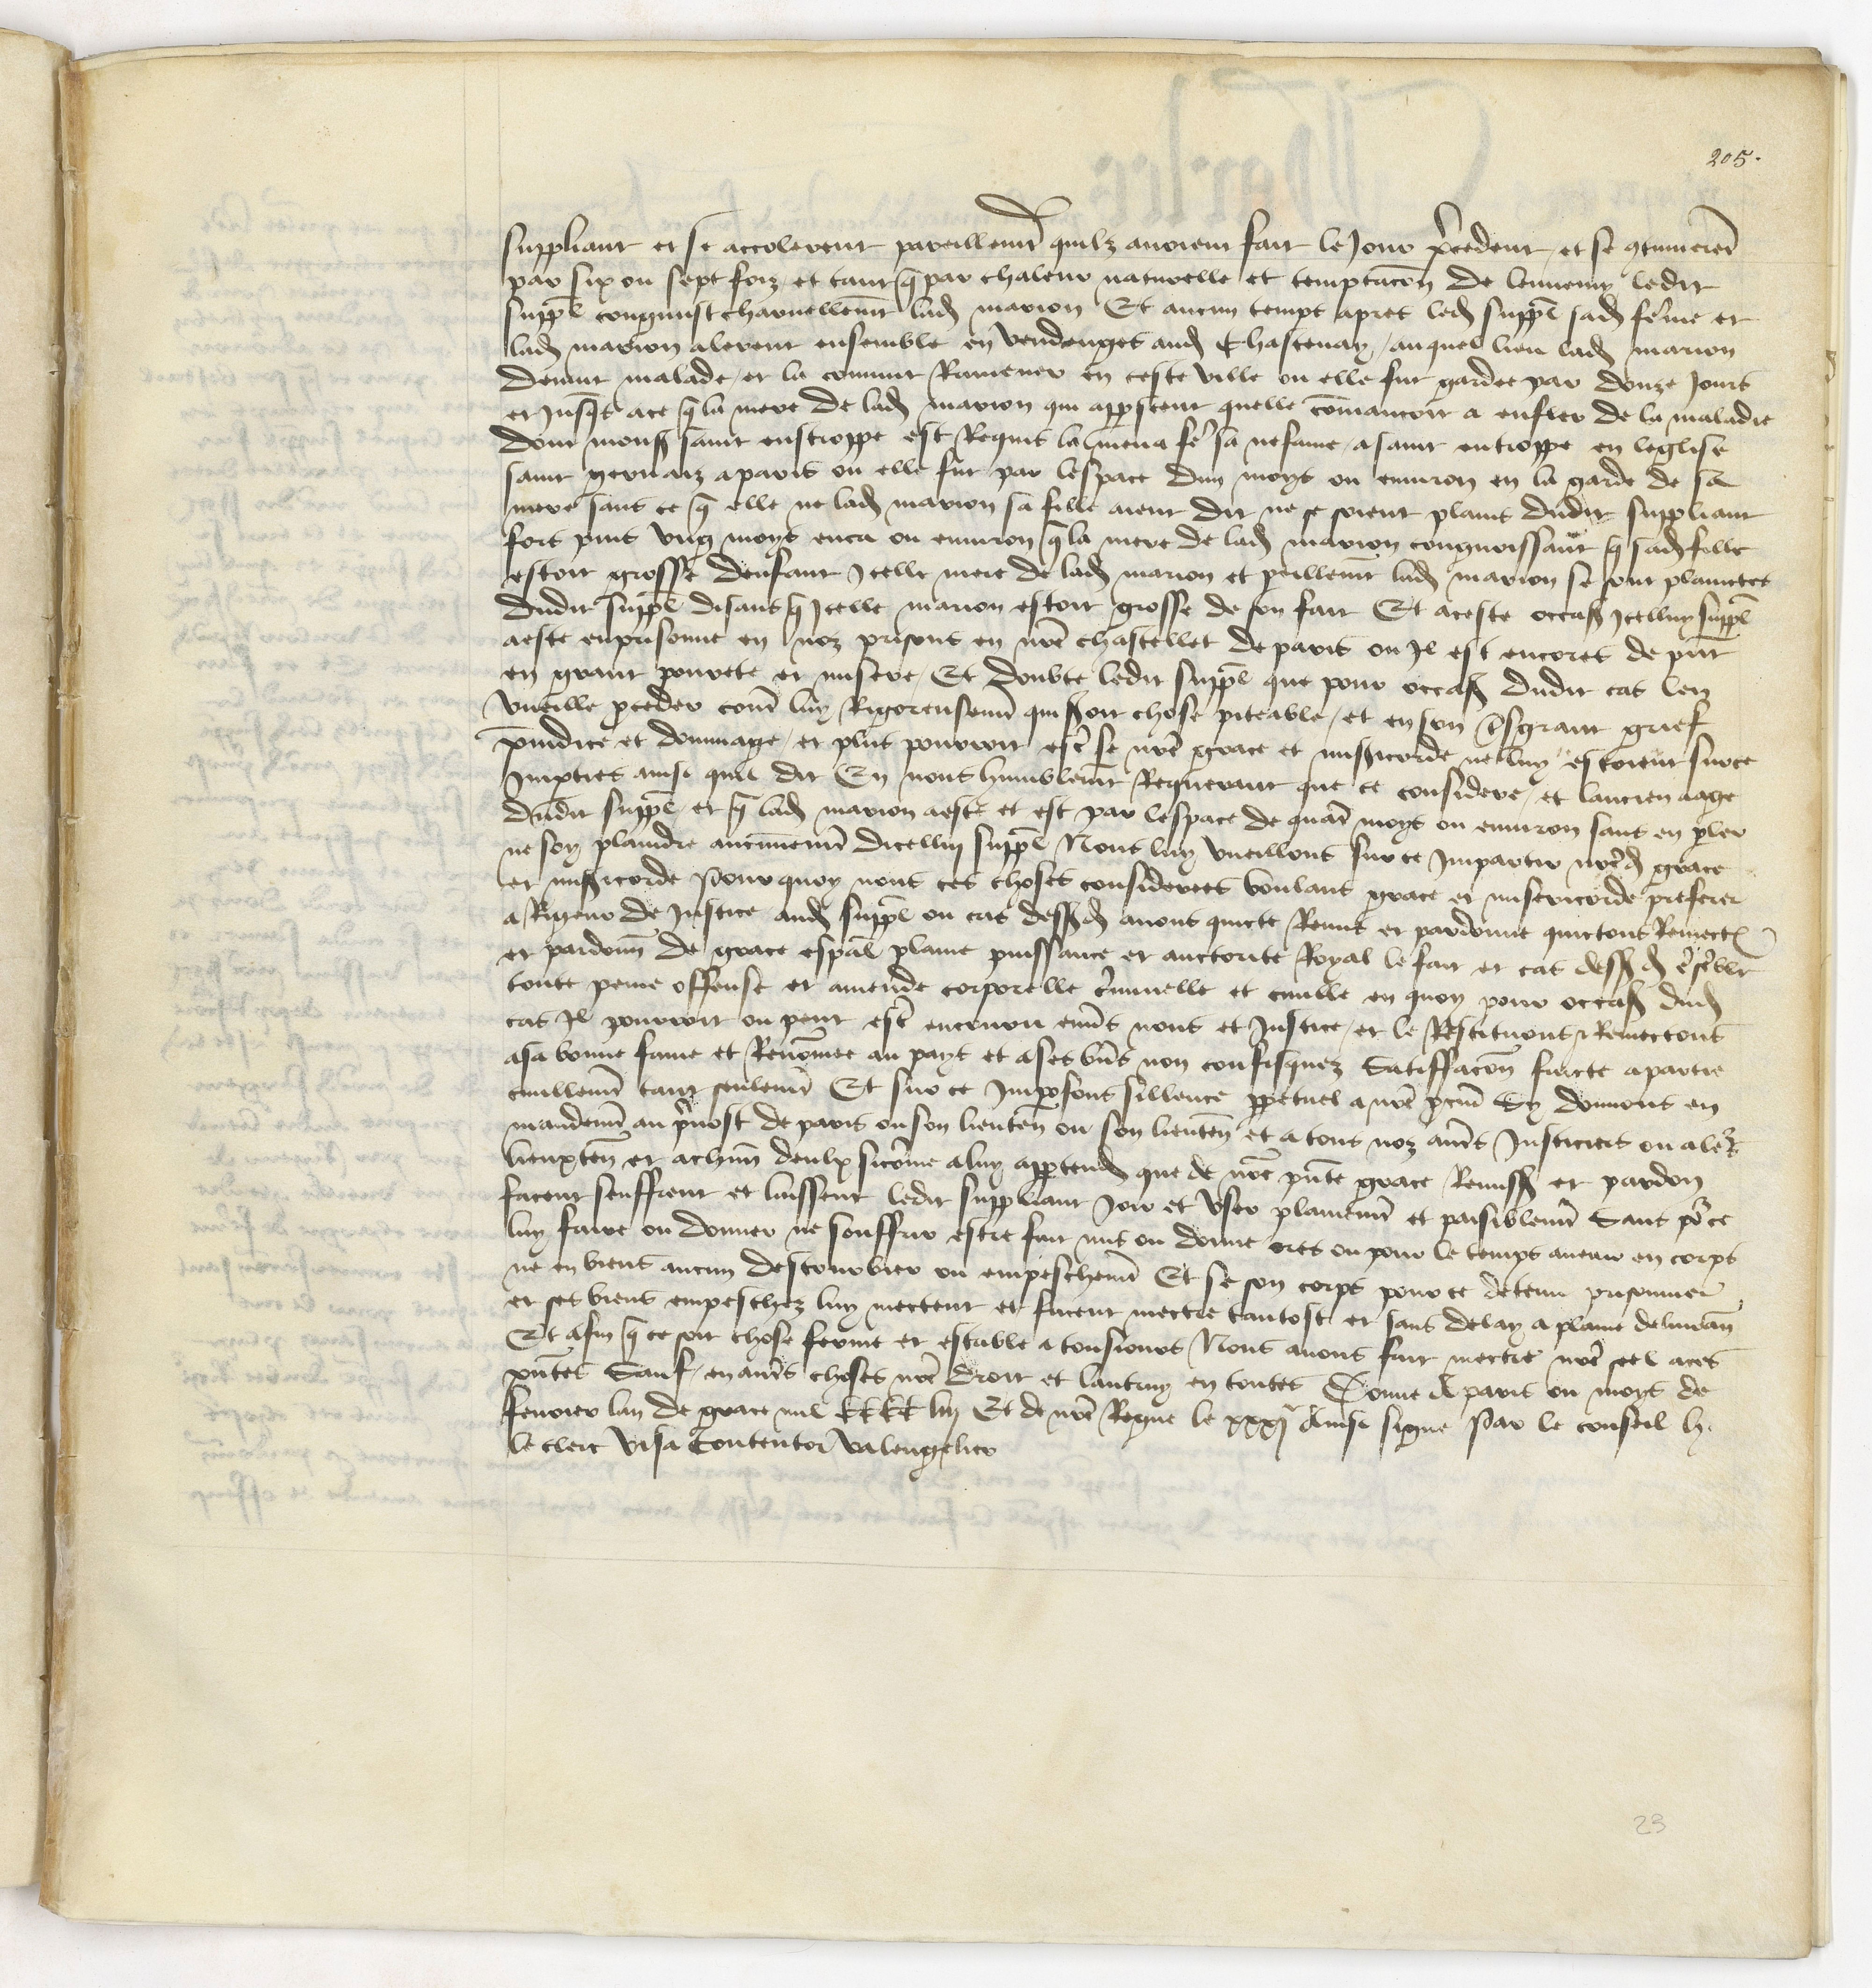 205.
suppliant et se accolerent pareillemt quilz avoient fait le Jour pcedent et se 9tinuerent
par six ou sept foiz et tant q par chaleur naturelle et temptacon de lennemy ledit
suppl congnust charnellemt lad marion Et aucun temps apres led suppl sad feme et
lad marion alerent ensemble en vendenges aud Chastenay auquel lieu lad marion
devint malade et la convint Ramener en ceste ville ou elle fut gardee par douze Jours
et Jusqs ace q la mere de lad marion qui apperceut quelle comancoit a enfler de la maladie
dont mons saint eustroppe est Requis la mena sa neufaine a saint entroppe en leglise
saint gervaiz a paris ou elle fut par lespace dun moys ou environ en la garde de sa
mere sans ce q elle ne lad marion sa fille aient dit ne se soient plains dudit suppliant
fors puis ung moys enca ou environ q la mere de lad marion congnoissant q sad fille
estoit grosse denfant Icelle mere de lad marion et peillemt lad marion se sont plainctes
dudit suppl disans q Icelle marion estoit grosse de son fait Et aceste occas Icelluy suppl
aeste enprisonne en noz prisons en nre chastellet de paris ou Il est encores de pnt
en grant povrete et misere Et doubte ledit suppl que pour occas dudit cas len
vueille pceder contre luy Rigoreusemt qui soit chose piteable et en son tsgrant grief
piudice et dommage et plus pourroit estre se nre grace et misicorde ne luy estoient sur ce
Impties ainsi quil dit En nous humblemt Requerant que ce considere et lancien aage
dudit suppl et q lad marion aeste et est par lespace de quatre moys ou environ sans en pler
ne soy plaindre aucunemt dicelluy suppl Nous luy vueillons sur ce Impartir nred grace
et misicorde Pour quoy nous ces choses considerees voulans grace et misericorde preferer
a Rigeur de Justice aud suppl ou cas dessusd avons quicte Remis et pardonne quictons Remect
et pardonn de grace espal plaine puissance et auctorite Royal le fait et cas dessusd
toute peine offense et amende corporelle criminelle et civille en quoy pour occas dud
cas Il pourroit ou peut estre encouru envers nous et Justice et le Restituons & Remectons
asa bonne fame et Renomee au pays et ases bns non confisquez Satiffacon faicte apartie
civillemt tant seulemt Et sur ce Imposons sillence ppetuel a nre pcur Sy donnons en
mandemt au pvost de paris ou son lieuten ou son lieuten et a tous noz autres Justiciers ou aleurs
lieuxten et achun deulx si come aluy appertend que de nre pnte grace Remiss et pardon
facent seuffrent et laissent ledit suppliant Joir et user plainemt et paisiblemt Sans pour ce
luy faire ou donner ne souffrir estre fait mis ou donne ores ou pour le temps avenir en corps
ne en biens aucun destourbier ou empeschemt Et se son corps pour ce detenu prisonnier
et ses biens empeschez luy mectent et facent mectre tantost et sans delay a plaine delivran
Et afin q ce soit chose ferme et estable a tousiours Nous avons fait mectre nre seel aces
pntes Sauf en autres choses nre droit et lautruy en toutes Donne A paris ou moys de
fevrier lan de grace mil cccc liij Et de nre Regne le xxxij Ainsi signe Par le conseil h.
le clerc Visa Contentor valengelier
23